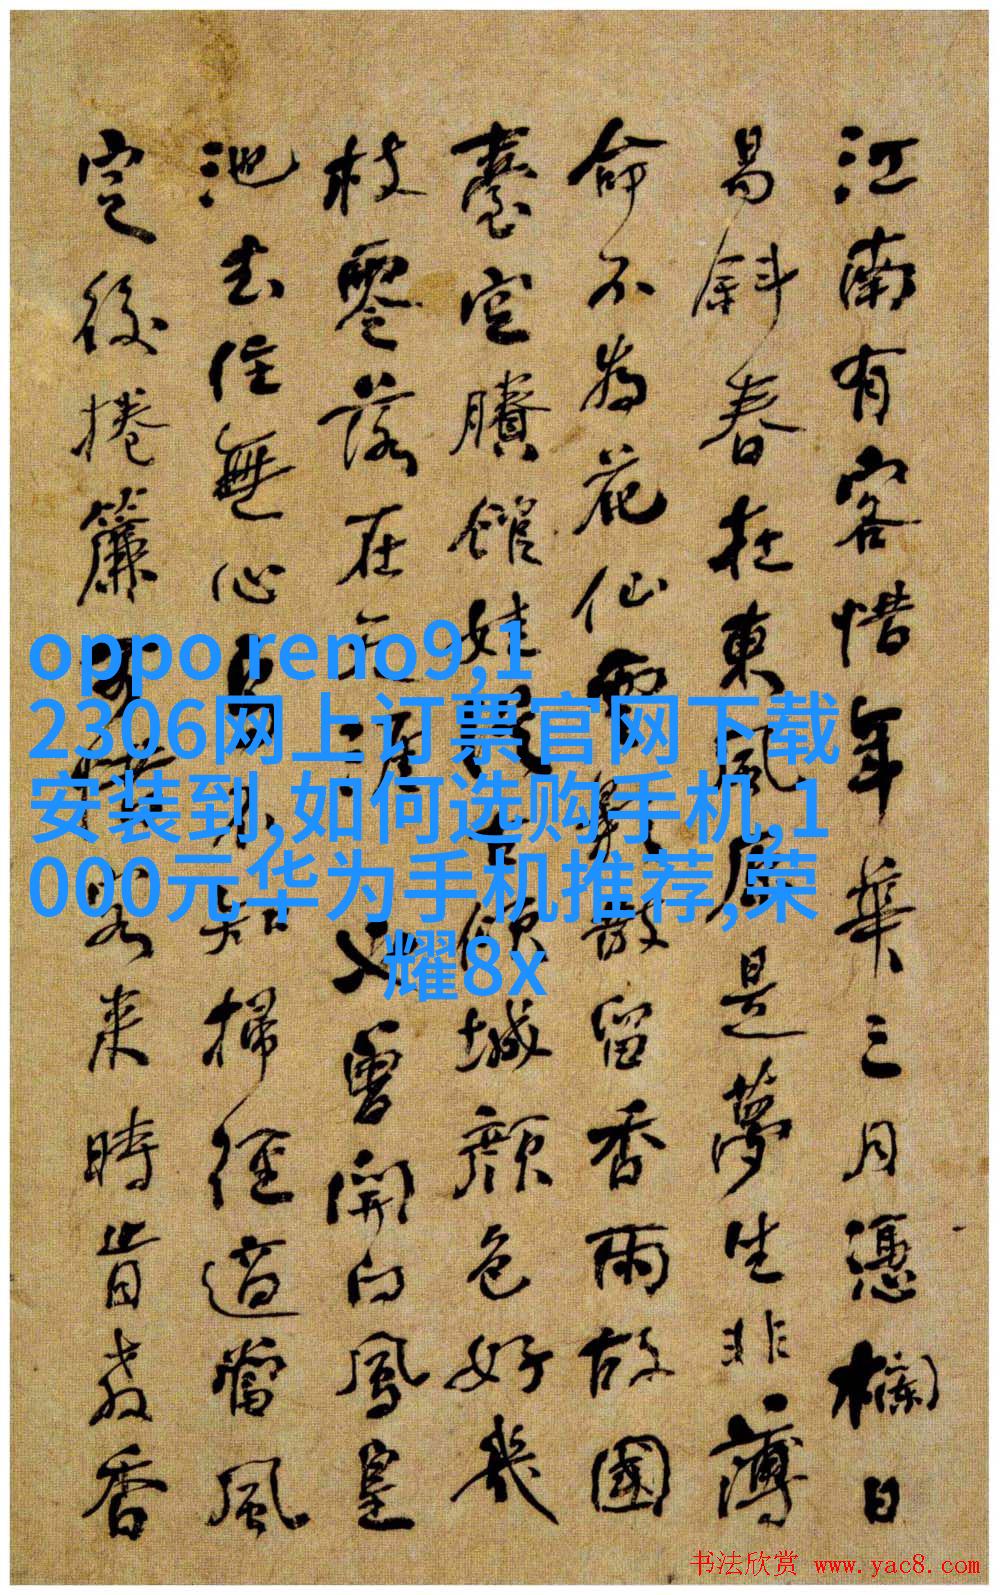 江南有客惜年華三月憑欄日
易斜春在東風原是夢生非薄
命不為花仙雲散留香雨故國
臺空賸館娃古傾城顏色好幾
枝零落在天涯又曾開向鳳皇
池去住無心自不知掃徑適當風
定後捲簾可惜客來時肯教香
oppo reno9,1
2306网上订票官网下载
安装到,如何选购手机,1
000元华为手机推荐,荣
耀8x
书法欣赏 www.yac8.com